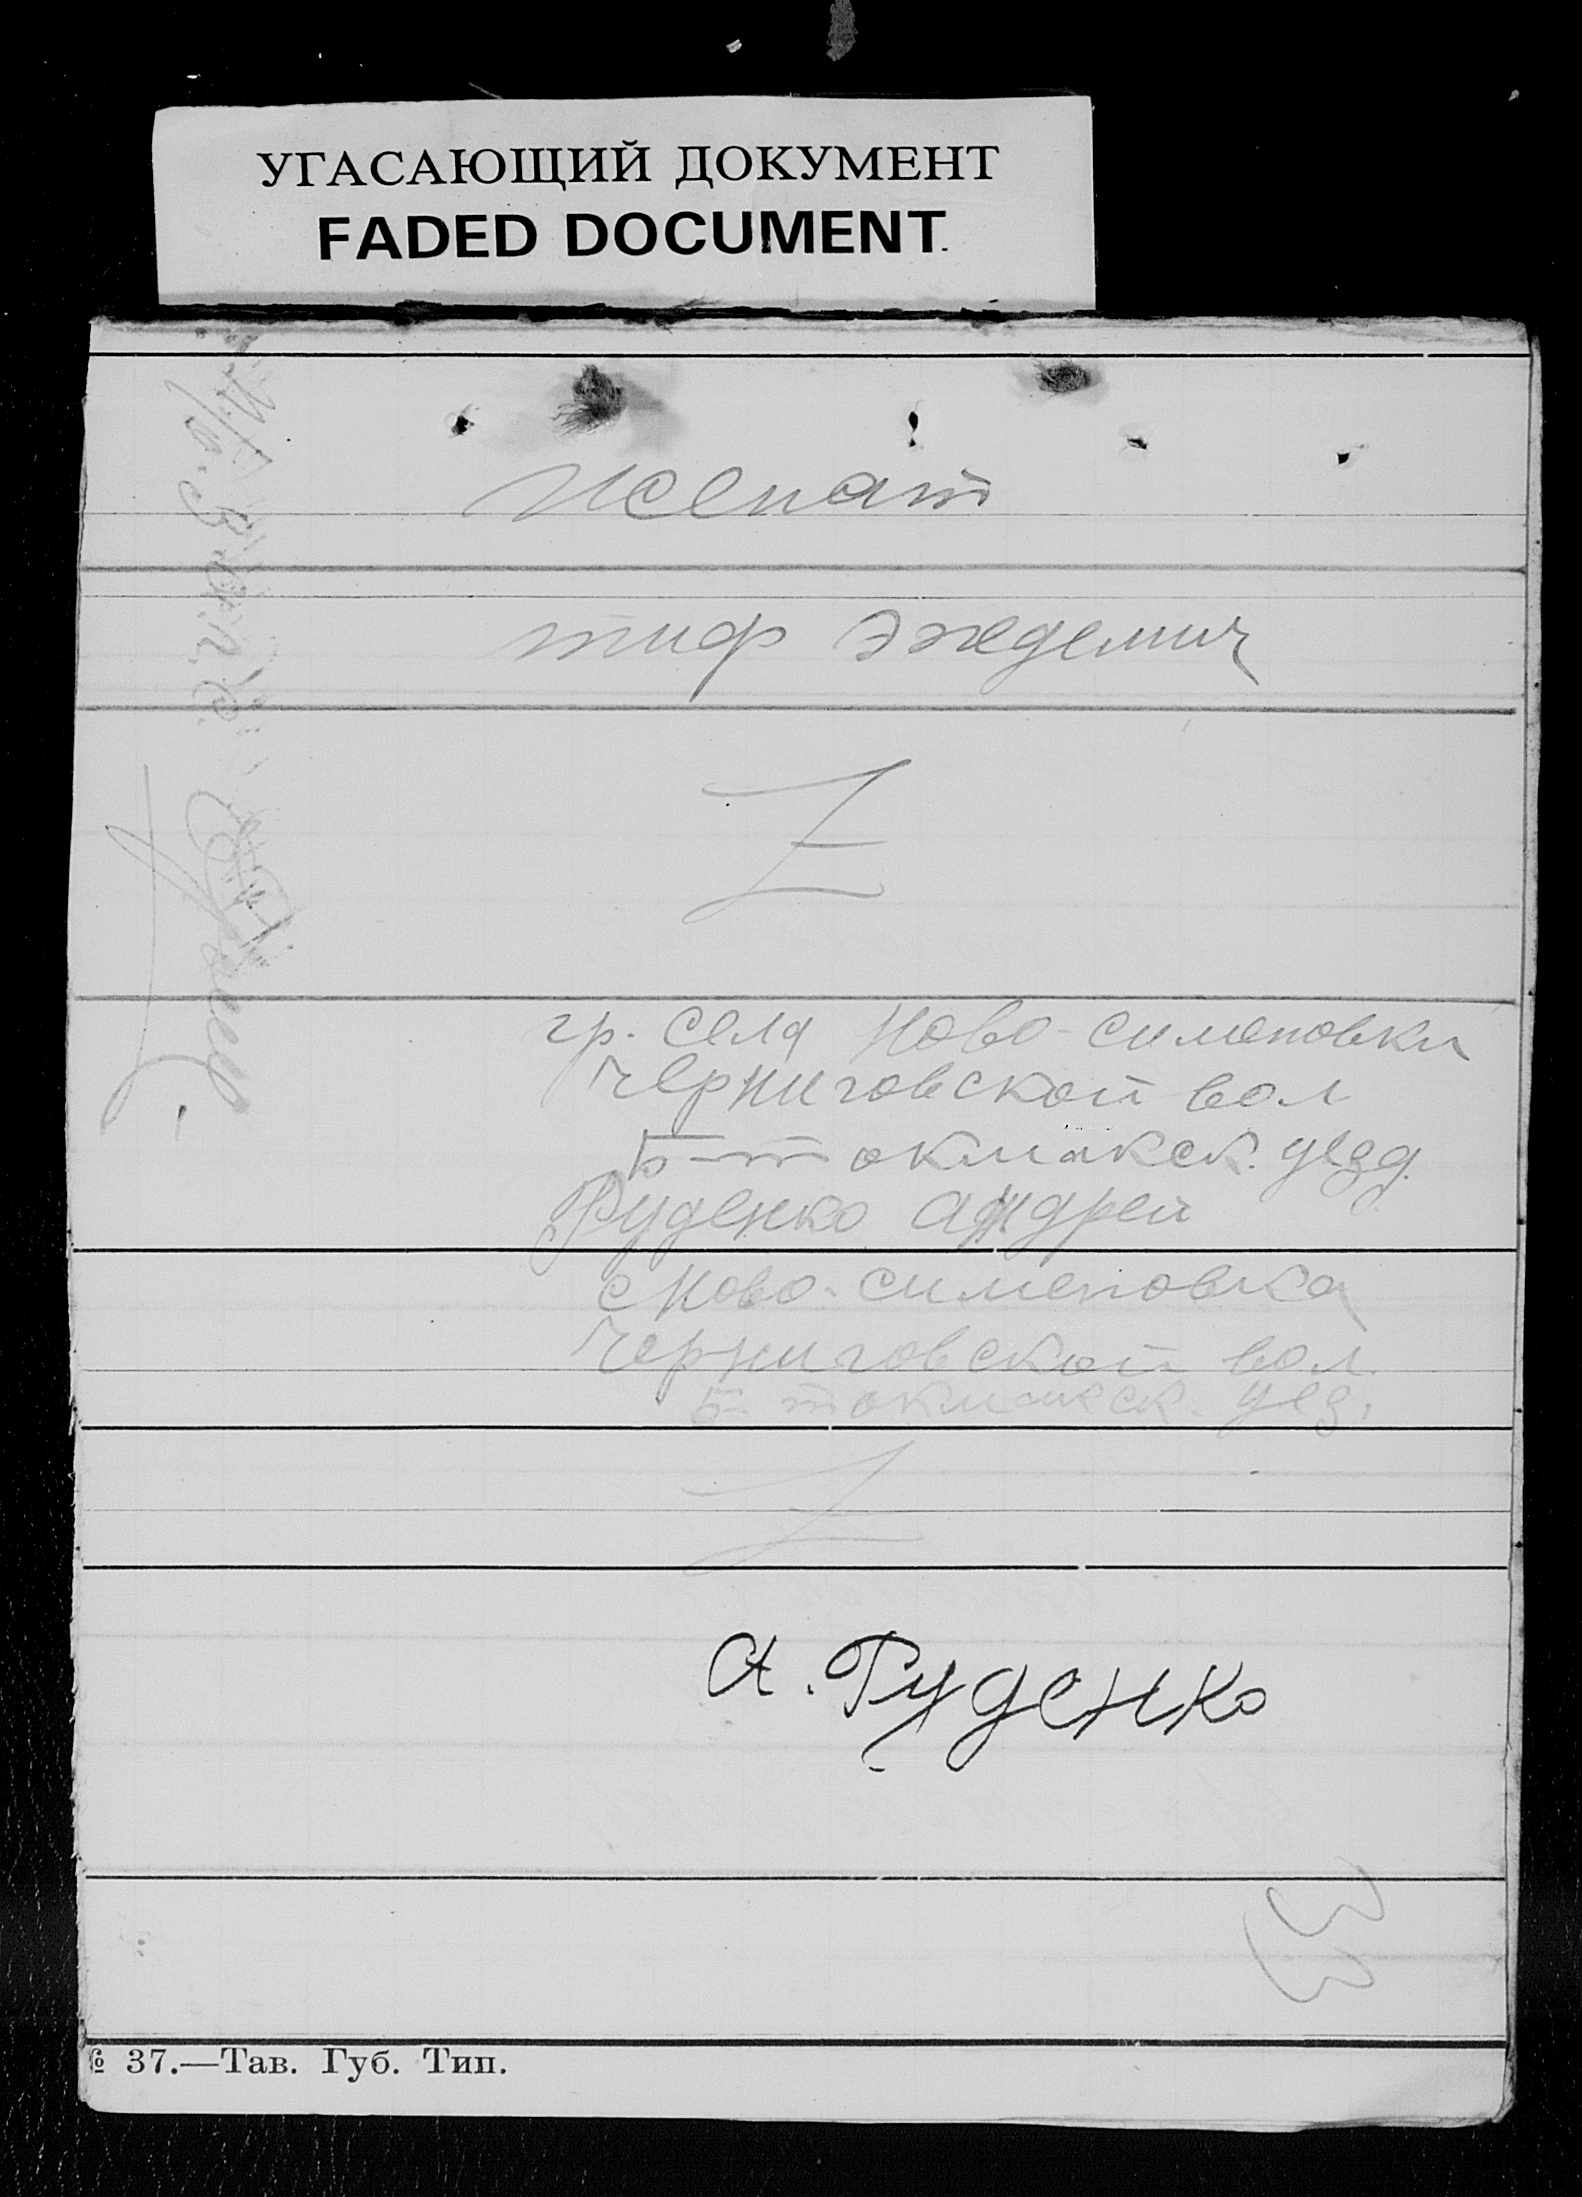 УГАСАЮЩИЙ ДОКУМЕНТ
FADED DOCUMENT
женат
тиф эпедемич
Z
гр. села Ново-сименовки
Черниговской вол
Б-токмакск. уезд.
Руденко Андрей
с Ново-сименовка
Черниговской вол.
Б-токмакск. уез.
Z
А. Руденко
33
№ 37.—Тав. Губ. Тип.